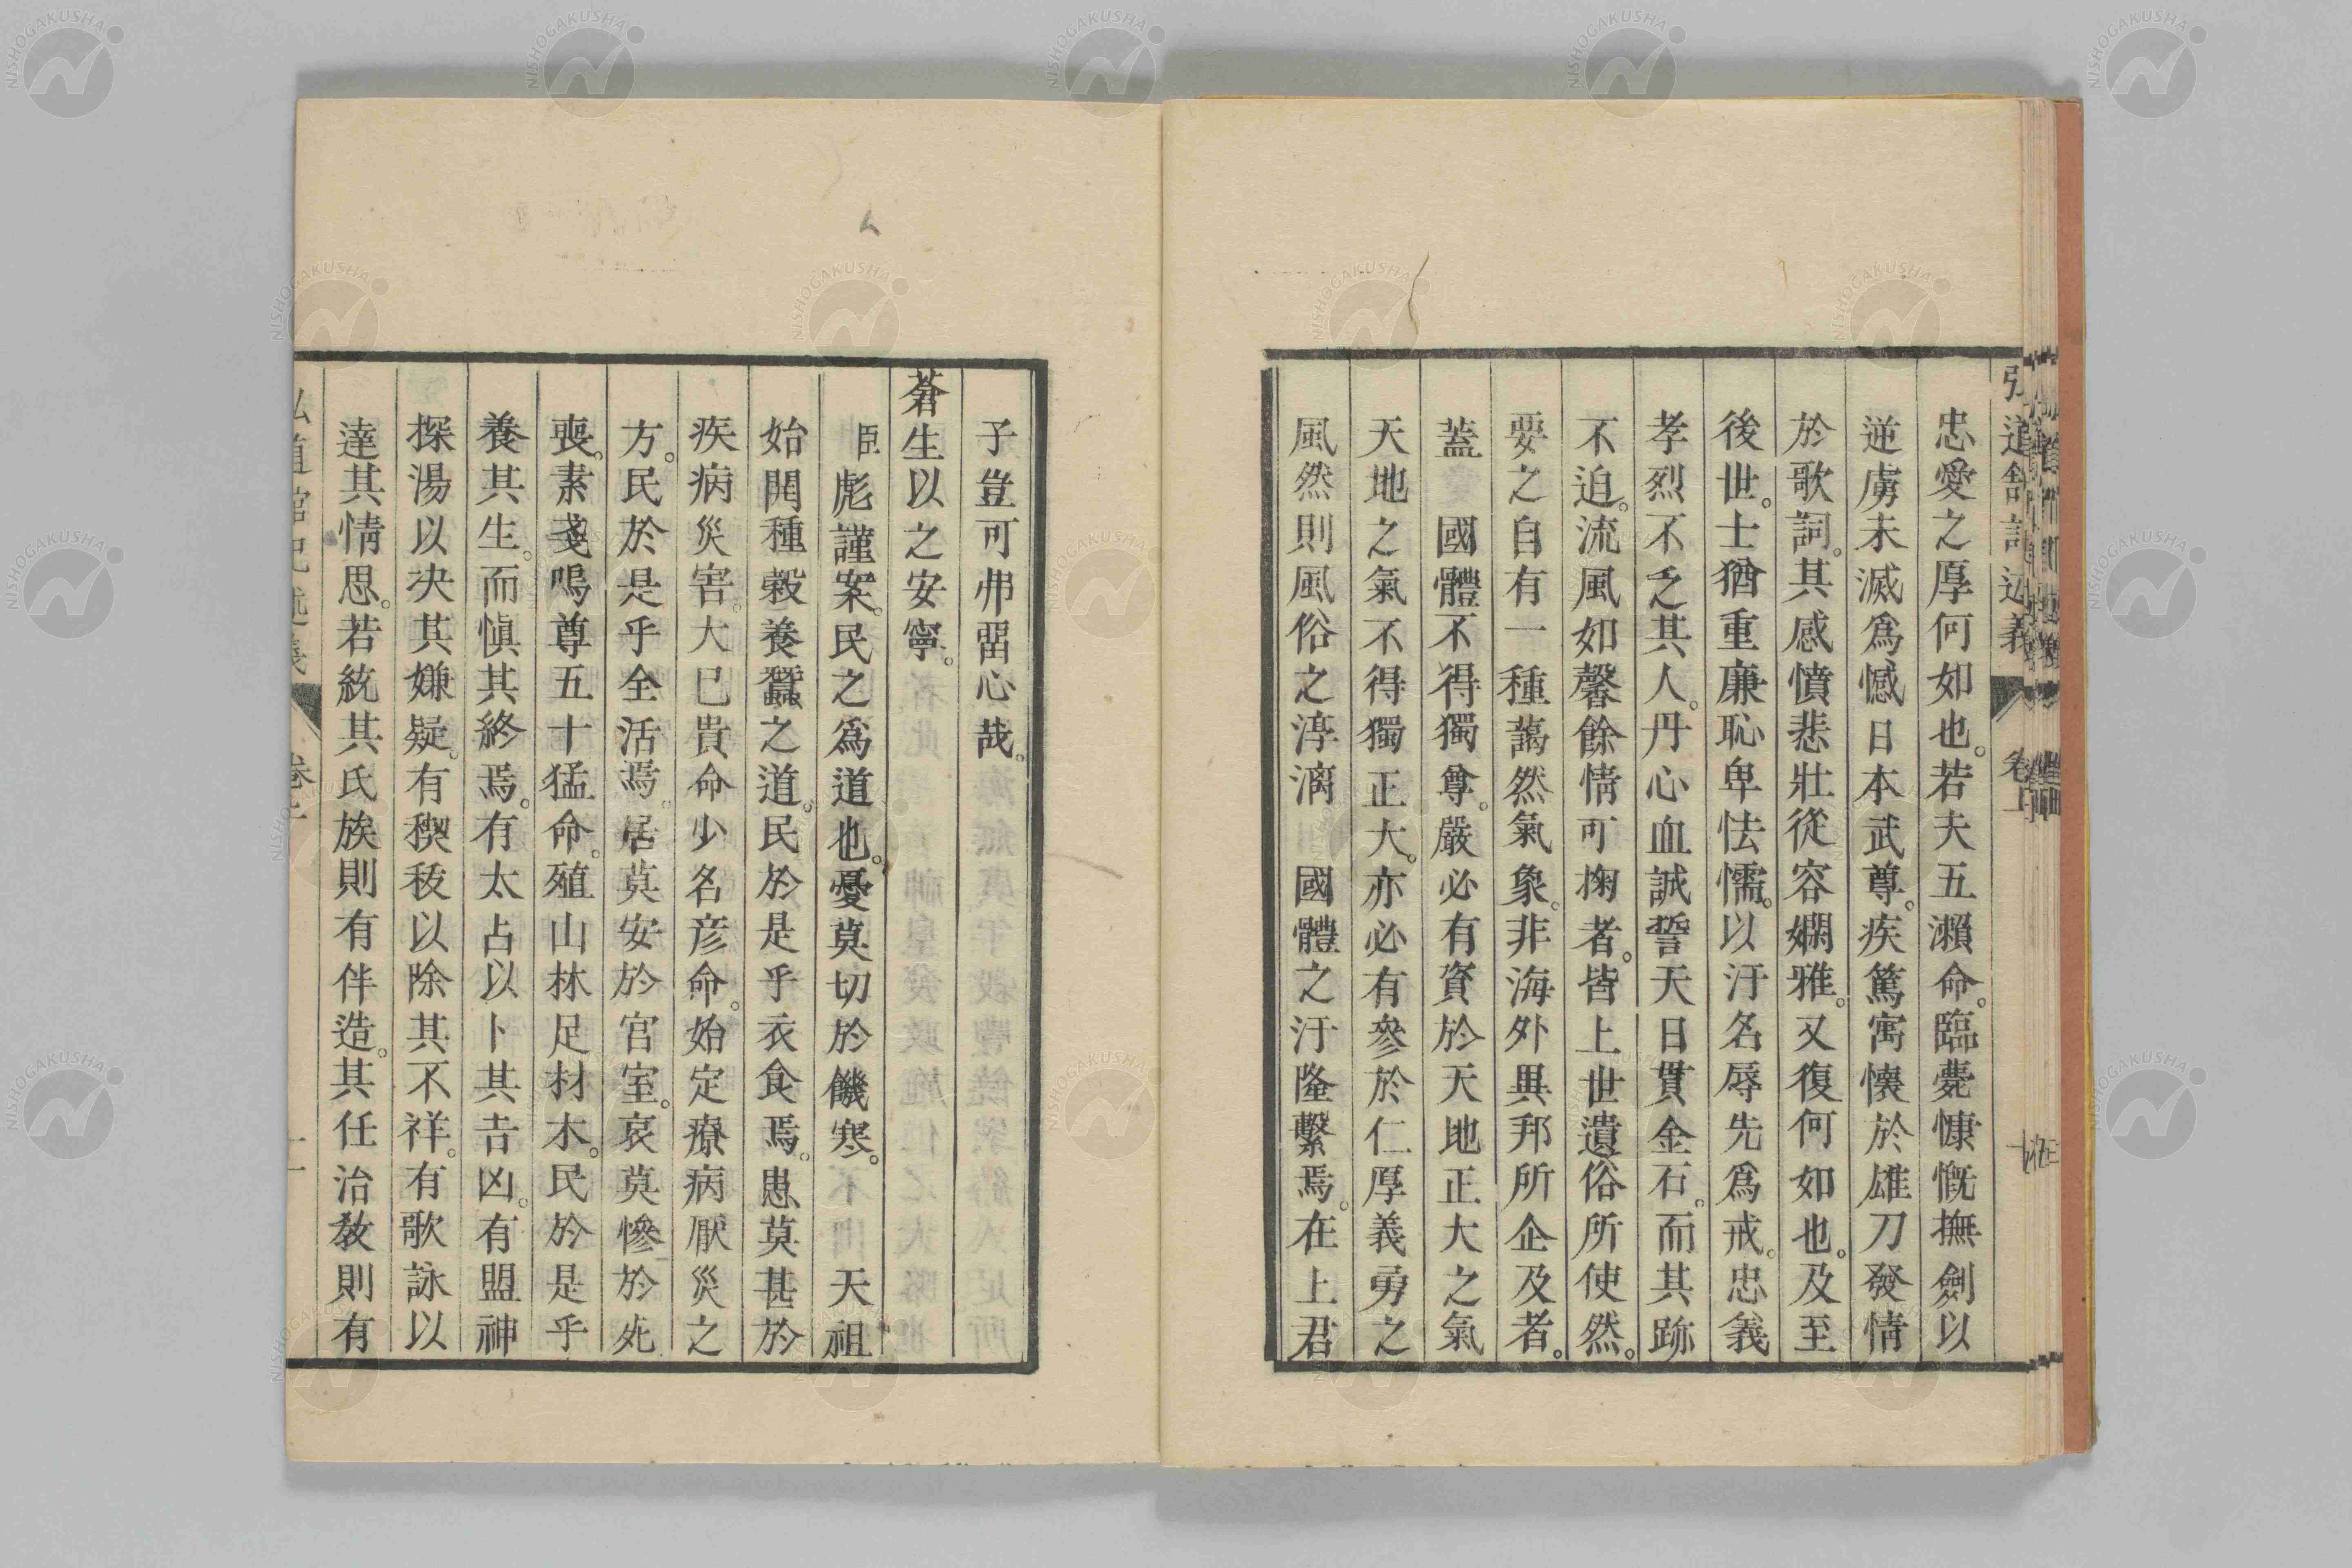 忠愛之厚何如也。若夫五瀨命。臨薨慷慨撫劍以
逆虜未滅爲憾日本武尊。疾篤寓懷於雄刀發情
於歌詞。其感憤悲壯從容嫻雅。又復何如也。及至
後世。士猶重廉恥卑怯懦。以汙名辱先爲戒。忠義
孝烈不乏其人。丹心血誠誓天日貫金石。而其跡
不迫。流風如馨餘情可掬者。皆上世遺俗所使然。
要之自有一種藹然氣象。非海外異邦所企及者。
蓋 國體不得獨尊。嚴必有資於天地正大之氣
天地之氣不得獨正大。亦必有參於仁厚義勇之
風然則風俗之淳漓 國體之汙隆繫焉。在上君
子豈可弗畱心哉。
蒼生以之安寧。
臣彪謹案。民之爲道也。憂莫切於饑寒。 天祖
始開種穀養蠶之道。民於是乎衣食焉。患莫甚於
疾病災害。大已貴命少名彦命。始定療病厭災之
方。民於是乎全活焉。居莫安於宮室。哀莫慘於死
喪。素戔嗚尊五十猛命。殖山林足材木。民於是乎
養其生。而愼其終焉。有太占以卜其吉凶。有盟神
探湯以决其嫌疑。有禊祓以除其不祥。有歌詠以
達其情思。若統其氏族則有伴造。其任治敎則有
弘道館記述義 卷上